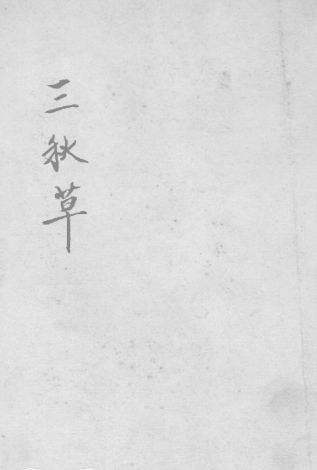 三秋草